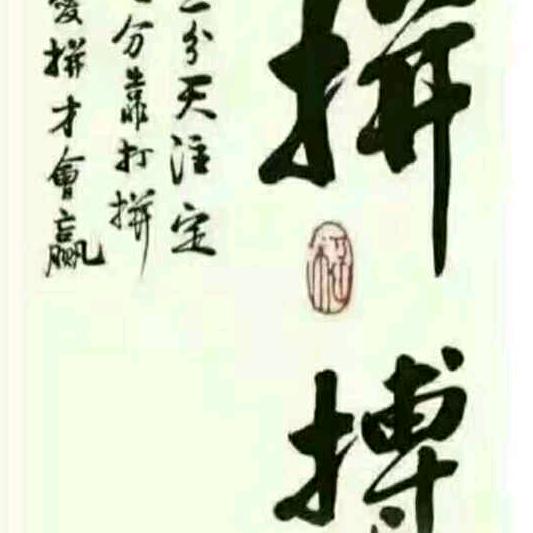 拼搏
分天注定
分靠打拼
愛拼才會贏